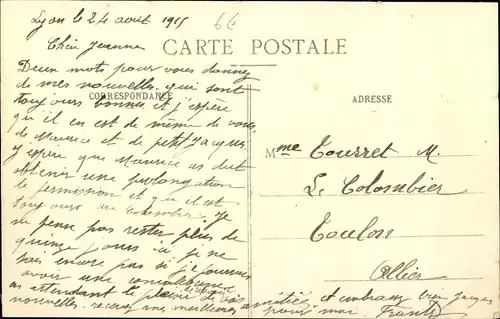 Lyon le 24 août 1915
6c
Chère Jeanne
CARTE POSTALE
Deux mots pour vous donner
de mes nouvelles qui sont
CORRESPONDANCE
ADRESSE
toujours bonnes et j'espère
qu'il en est de même de vous,
de Maurice et de petit Jacques
Mme Tourret M.
J'espère que Maurice as dut
obtenir une prolongation
Le Colombier
de permission et qu'il est
toujours au Colombier. Je
Toulon
ne pense pas rester plus de
quinze jours ici, je ne
Allier
sais encore pas si je pourrais
avoir une convalescence
en attendant le plaisir de vos
nouvelles recevez mes meilleures amitiés et embrassez bien Jacques
pour moi